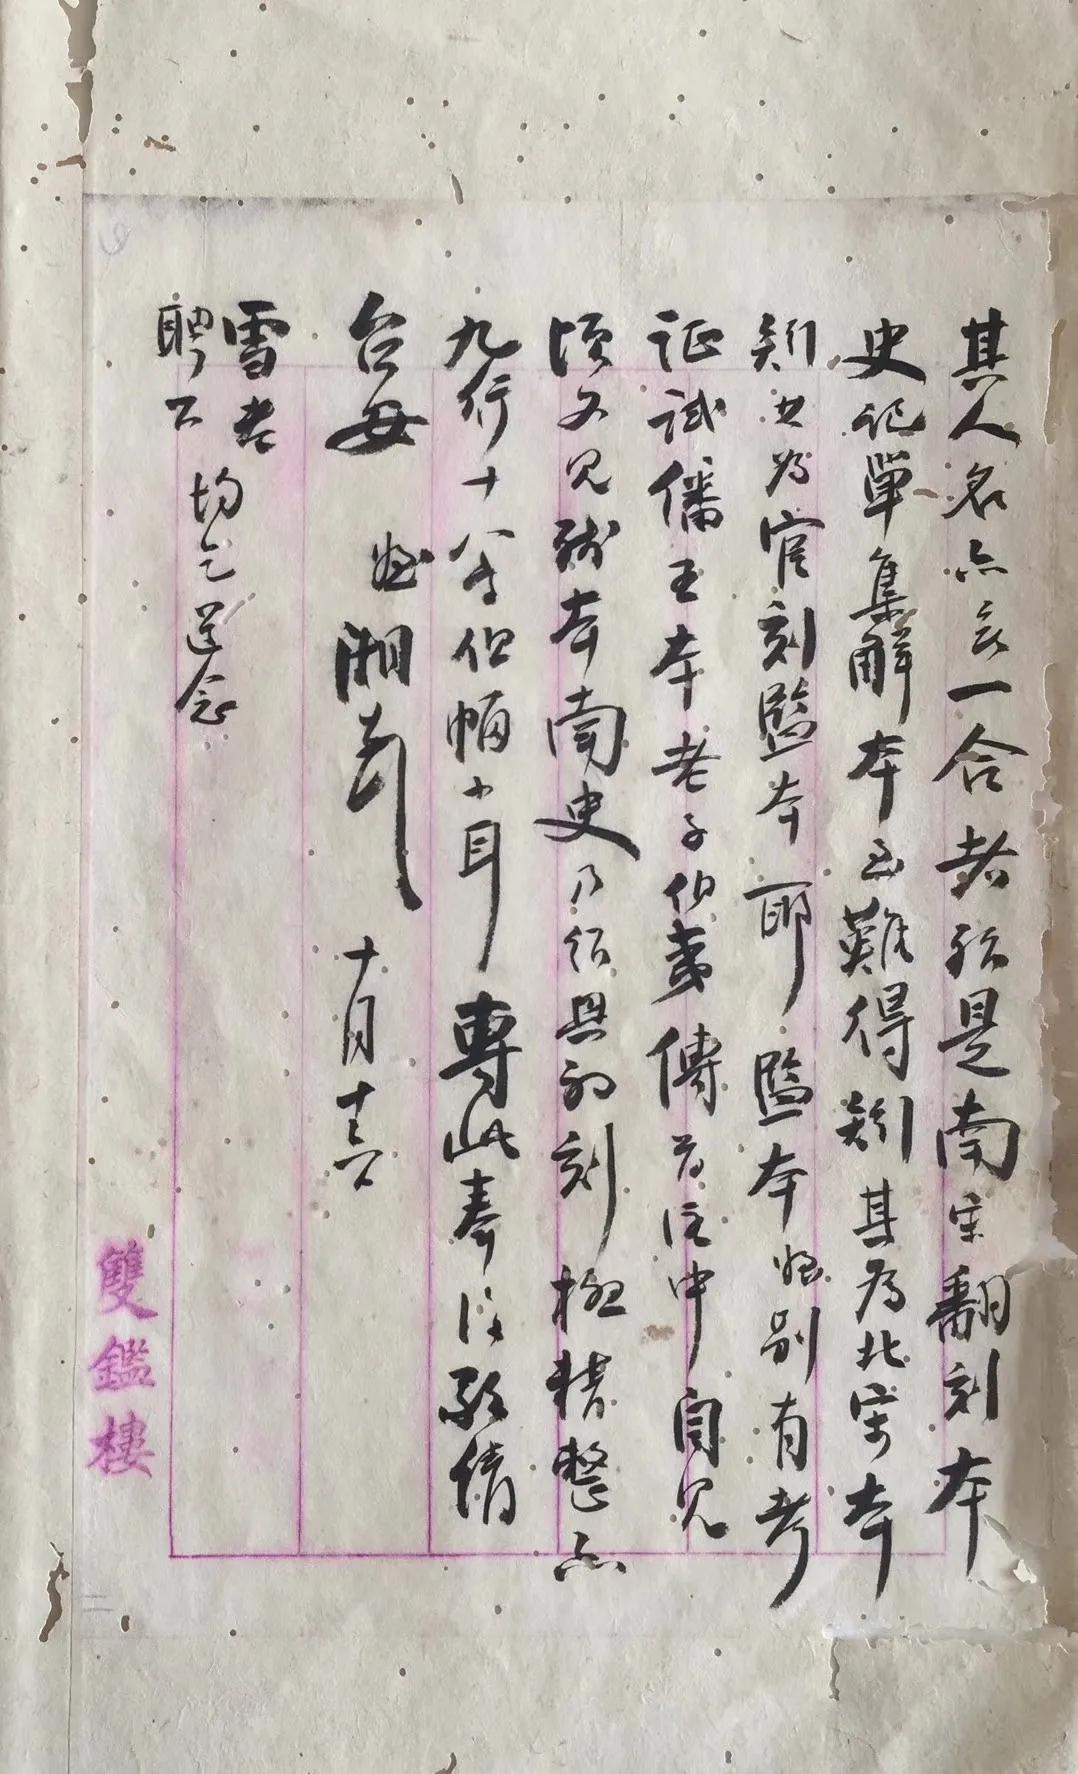 其人名亦無一合者殆是南宋翻刻本
史記單集解本至難得斷其為北宋本
斷其為官刻監本耶監本恐別有考
證試僠王本老子伯夷傳首注中自見
頃又見殘本南史乃紹興初刻極精整亦
九行十八字但幅小耳專此奉復敬請
台安 湘 十月十六
雪老
聘公 均乞道念
雙鑑樓